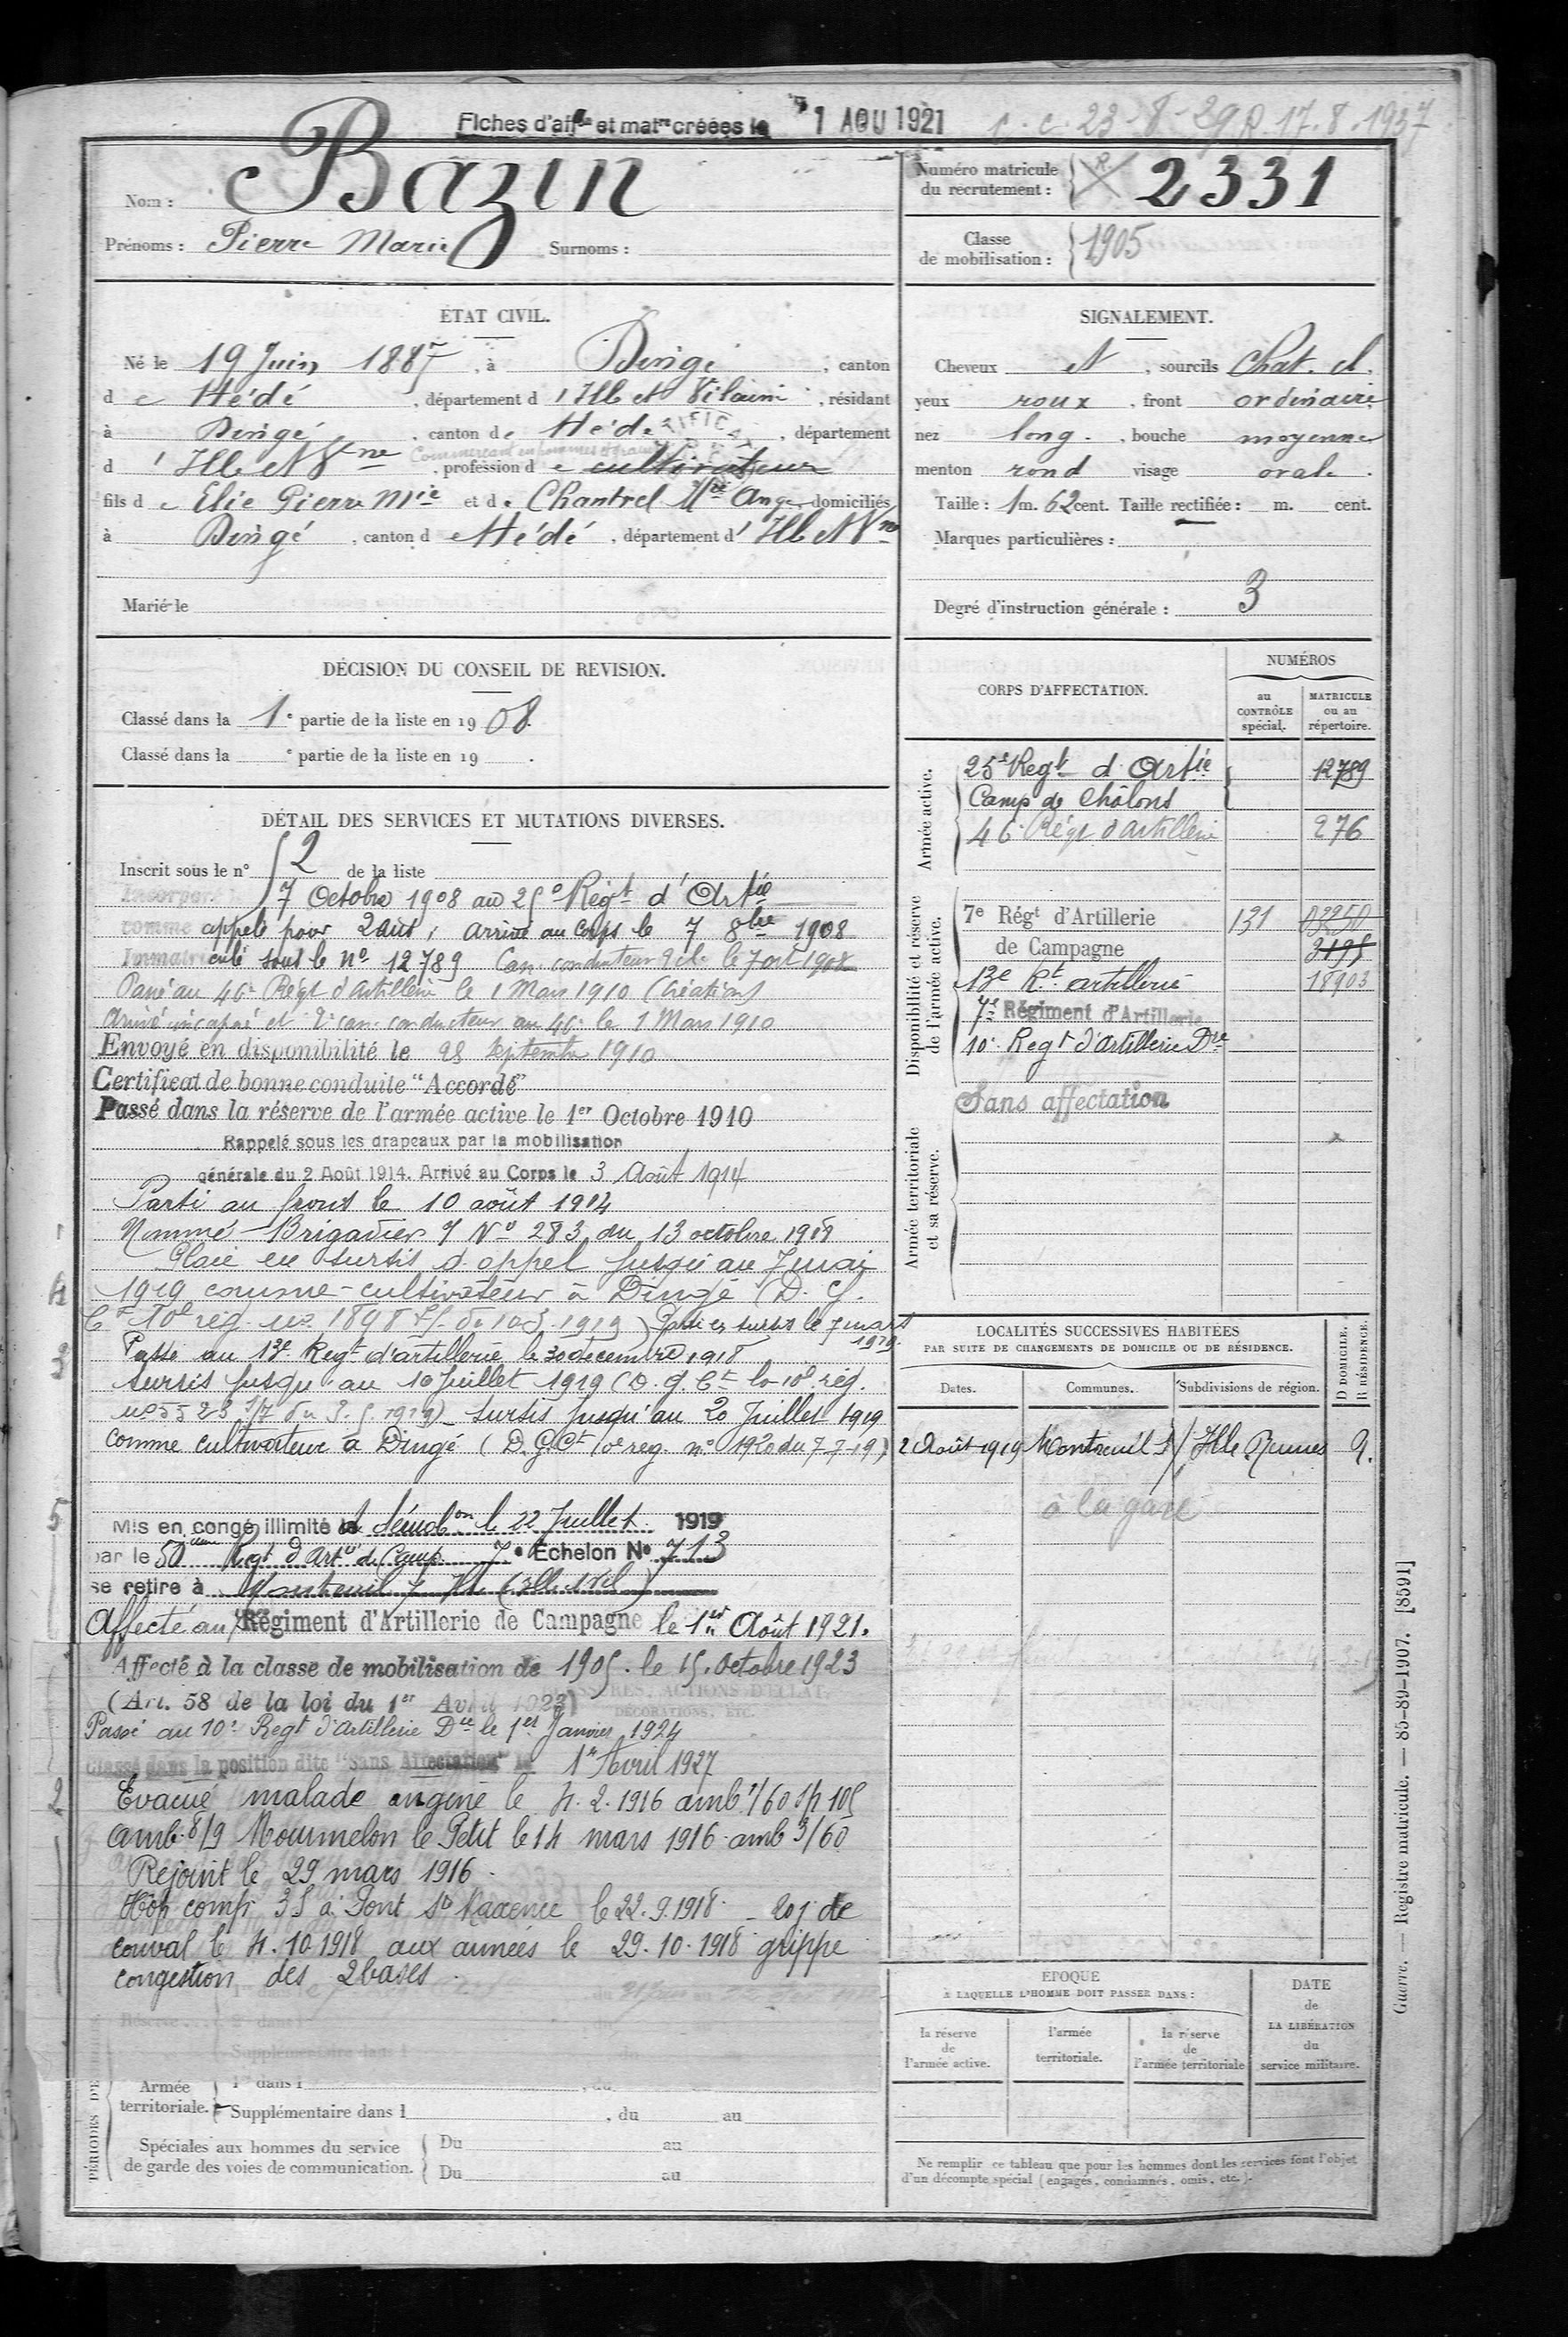 Fiches d'aff on et matre créées le 1 AOU 1921 c. c. 23-8-29 P. 17.8.1937
Nom : Bazin
Prénoms : Pierre Marie Surnoms :
Numéro matricule du recrutement : R. 2331
Classe de mobilisation : 1905
ÉTAT CIVIL.
Né le 19 Juin 1887, à Dingé, canton
de Hédé, département d'Ille et Vilaine, résidant
à Dingé, canton de Hédé, département
d'Ille et Vne, profession de cultivateur
fils de Elie Pierre Mie et de Chantrel Mie Ange domiciliés
à Dingé, canton de Hédé, département d'Ille et Vne
Marié le
SIGNALEMENT.
Cheveux et, sourcils Chat. cl.
yeux roux, front ordinaire
nez long., bouche moyenne
menton rond visage ovale.
Taille : 1m. 62 cent. Taille rectifiée : m. cent.
Marques particulières :
Degré d'instruction générale : 3
DÉCISION DU CONSEIL DE REVISION.
Classé dans la 1e partie de la liste en 1908.
Classé dans la e partie de la liste en 19 .
DÉTAIL DES SERVICES ET MUTATIONS DIVERSES.
Inscrit sous le n° 2 de la liste
Incorporé 7 Octobre 1908 au 25e Régt d'Artie
comme appelé pour 2 ans, arrivé au corps le 7 8bre 1908
Immatriculé sous le n° 12789 Can. conducteur le 7 oct 1908
Passé au 46e Régt d'Artillerie le 1 Mars 1910 (Création)
Arrivé et 2e can. conducteur au 46e le 1 Mars 1910
Envoyé en disponibilité le 28 Septembre 1910
Certificat de bonne conduite "Accordé"
Passé dans la réserve de l'armée active le 1er Octobre 1910
Rappelé sous les drapeaux par la mobilisation
générale du 2 Août 1914. Arrivé au Corps le 3 Août 1914
Parti au front le 10 août 1914
Nommé Brigadier N° 283 du 13 octobre 1918
Placé en sursis d'appel jusqu'au 7 mai
1919 comme cultivateur à Dingé (D. G.
Ct 10e reg. no 1898 du 10-3-1919) Parti en sursis le 7 mars 1919.
Passé au 13e Regt d'artillerie le 30 decembre 1918
sursis jusqu'au 10 Juillet 1919 (D. G. Ct la 10e rég.
no 5523 S/7 du 3.5.1919) sursis jusqu'au 20 Juillet 1919
comme cultivateur à Dingé (D.G.Ct 10e reg. n° 1920 du 7-7-19)
Mis en congé illimité de démobon le 22 Juillet 1919
par le 50ième Regt d'Artie de Camp. 7e Echelon N° 713
se retire à Montreuil s/ Ille (Ille et Vil)
Affecté au 7e Régiment d'Artillerie de Campagne le 1er Août 1921.
Affecté à la classe de mobilisation de 1905. le 15. Octobre 1923
(Art. 58 de la loi du 1er Avril 1923)
Passé au 10e Regt d'Artillerie Dre le 1er Janvier 1924
Classé dans la position dite "Sans Affectation" le 1er Avril 1927
Evacué malade angine le 4.2.1916 amb 1/60 Sp 105
Amb. 8/9 Mourmelon le Petit le 14 mars 1916 amb 3/60
Rejoint le 29 mars 1916.
Hôp comp. 35 à Pont Ste Maxence le 22.9.1918. de
conval le 4.10.1918 aux armées le 29.10.1918 grippe
congestion des 2 bases.
Réserve
Armée territoriale. 1re dans l , du
Supplémentaire dans l , du au
Spéciales aux hommes du service de garde des voies de communication. Du au
Du au
CORPS D'AFFECTATION.
NUMÉROS
au CONTRÔLE spécial. MATRICULE ou au répertoire.
Armée active.
25e Regt d'Artie 12789
Camp de Châlons
46e Régt d'artillerie 276
Disponibilité et réserve de l'armée active.
7e Régt d'Artillerie 131 03250
de Campagne
13e Rt artillerie 18903
7e Régiment d'Artillerie
10e Regt d'artillerie Dre
Sans affectation
Armée territoriale et sa réserve.
LOCALITÉS SUCCESSIVES HABITÉES
PAR SUITE DE CHANGEMENTS DE DOMICILE OU DE RÉSIDENCE.
Dates. Communes. Subdivisions de région. D DOMICILE. R RÉSIDENCE.
2 Août 1919 Montreuil s/ Ille Rennes
à la gare
ÉPOQUE
À LAQUELLE L'HOMME DOIT PASSER DANS :
la réserve de l'armée active. l'armée territoriale. la réserve de l'armée territoriale
DATE de LA LIBÉRATION du service militaire.
Ne remplir ce tableau que pour les hommes dont les services font l'objet
d'un décompte spécial (engagés, condamnés, omis, etc.).
Guerre. — Registre matricule. — 85-89-1907. [8591]